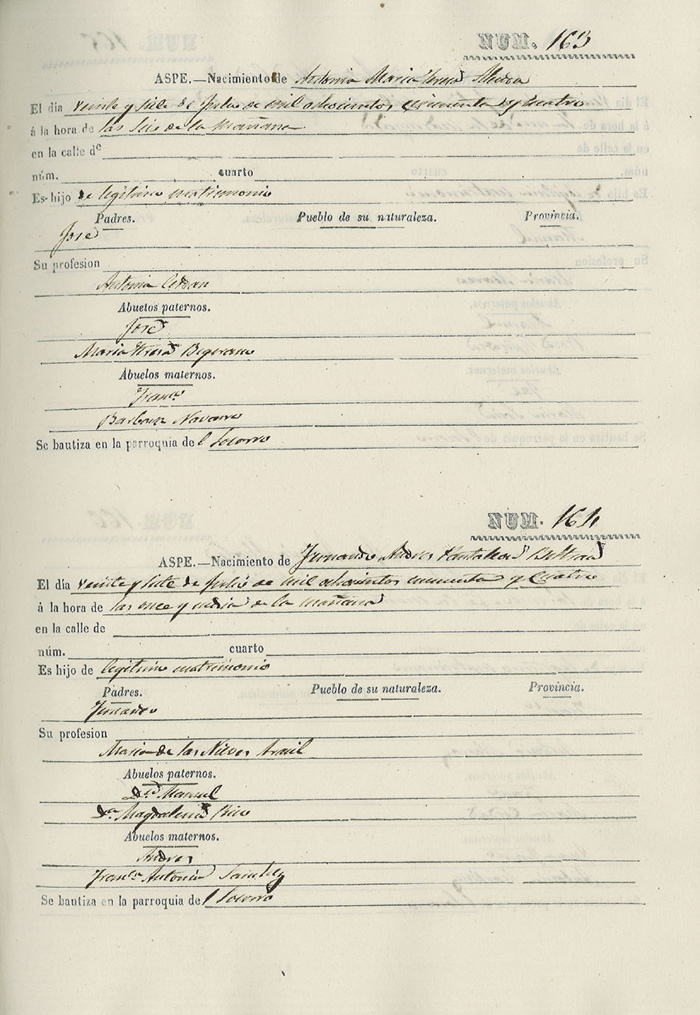 NUM. 163
ASPE.—Nacimiento de Antonia Maria Teresa
El dia veinte y siete de Julio de mil ochocientos cincuenta y cuatro
á la hora de las seis de la mañana
en la calle de
núm. cuarto
Es hijo de legitimo matrimonio
Padres. Pueblo de su naturaleza. Provincia.
José
Su profesion
Antonia Cerdan
Abuelos paternos.
José
Maria Teresa
Abuelos maternos.
Franco
Barbara Navarro
Se bautiza en la parroquia del Socorro
NUM. 164
ASPE.—Nacimiento de Fernando Andres Pantaleon Beltran
El dia veinte y siete de Julio de mil ochocientos cincuenta y cuatro
á la hora de las once y media de la mañana
en la calle de
núm. cuarto
Es hijo de legitimo matrimonio
Padres. Pueblo de su naturaleza. Provincia.
Fernando
Su profesion
Maria de las Nieves
Abuelos paternos.
Dn Manuel
Da Magdalena Rico
Abuelos maternos.
Andres
Franca Antonia Sanchez
Se bautiza en la parroquia del Socorro